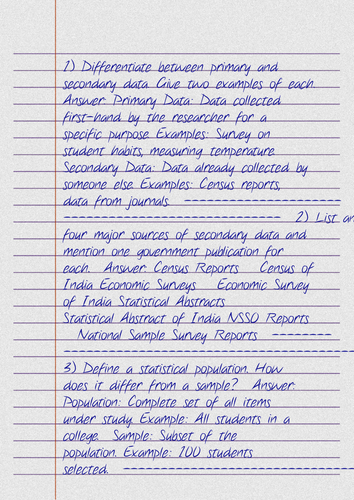 1) Differentiate between primary and
secondary data. Give two examples of each.
Answer: Primary Data: Data collected
first-hand by the researcher for a
specific purpose. Examples: Survey on
student habits, measuring temperature.
Secondary Data: Data already collected by
someone else. Examples: Census reports,
data from journals. ----------------------
------------------------------ 2) List an
four major sources of secondary data and
mention one government publication for
each. Answer: Census Reports Census of
India Economic Surveys Economic Survey
of India Statistical Abstracts
Statistical Abstract of India NSSO Reports
National Sample Survey Reports --------
----------------------------------------
3) Define a statistical population. How
does it differ from a sample? Answer:
Population: Complete set of all items
under study. Example: All students in a
college. Sample: Subset of the
population. Example: 100 students
selected. --------------------------------